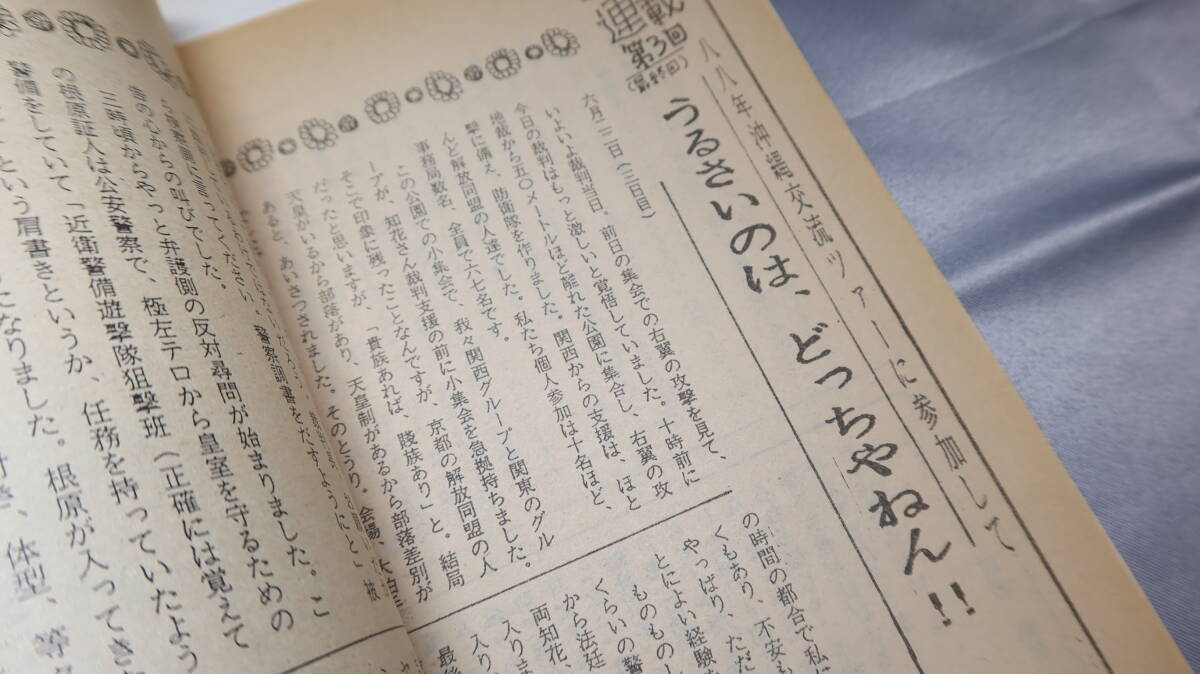 連載
第3回
(最終回)
八八年沖縄交流ツアーに参加して
うるさいのは、どっちやねん!!
六月二二日(三日目)
いよいよ裁判当日。前日の集会での右翼の攻撃を見て、
今日の裁判はもっと激しいと覚悟していました。十時前に
地裁から五〇メートルほど離れた公園に集合し、右翼の攻
撃に備え、防衛隊を作りました。関西からの支援は、ほと
んど解放同盟の人達でした。私たち個人参加は十名ほど、
事務局数名、全員で六七名です。
この公園での小集会で、我々関西グループと関東のグル
ープが、知花さん裁判支援の前に小集会を急拠持ちました。
そこで印象に残ったことなんですが、京都の解放同盟の人
だったと思いますが、「貴族あれば、賤族あり」と。結局
天皇がいるから部落があり、天皇制があるから部落差別が
あると、あいさつされました。そのとうり。会場
の時間の都合で私
くもあり、不安も
やっぱり、ただ
とによい経験
ものものし
くらいの警
から法廷
両知花、
入りま
入り
最後
言ってください。警察調書をだすようにと」被
告の心からの叫びでした。
三時頃からやっと弁護側の反対尋問が始まりました。こ
の根原証人は公安警察で、極左テロから皇室を守るための
警備をしていて「近衛警備遊撃隊狙撃班(正確には覚えて
という肩書きというか、任務を持っていたよう
になりました。根原が入ってき
体型、等